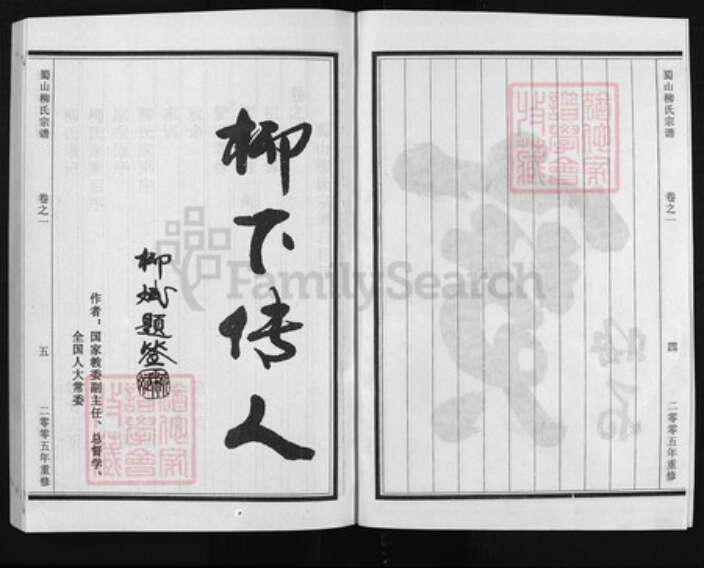 蜀山柳氏宗谱
卷之一
四
二零零五年重修
柳下传人
柳斌题签
作者：国家教委副主任、总督学、
全国人大常委
蜀山柳氏宗谱
卷之一
五
二零零五年重修
FamilySearch